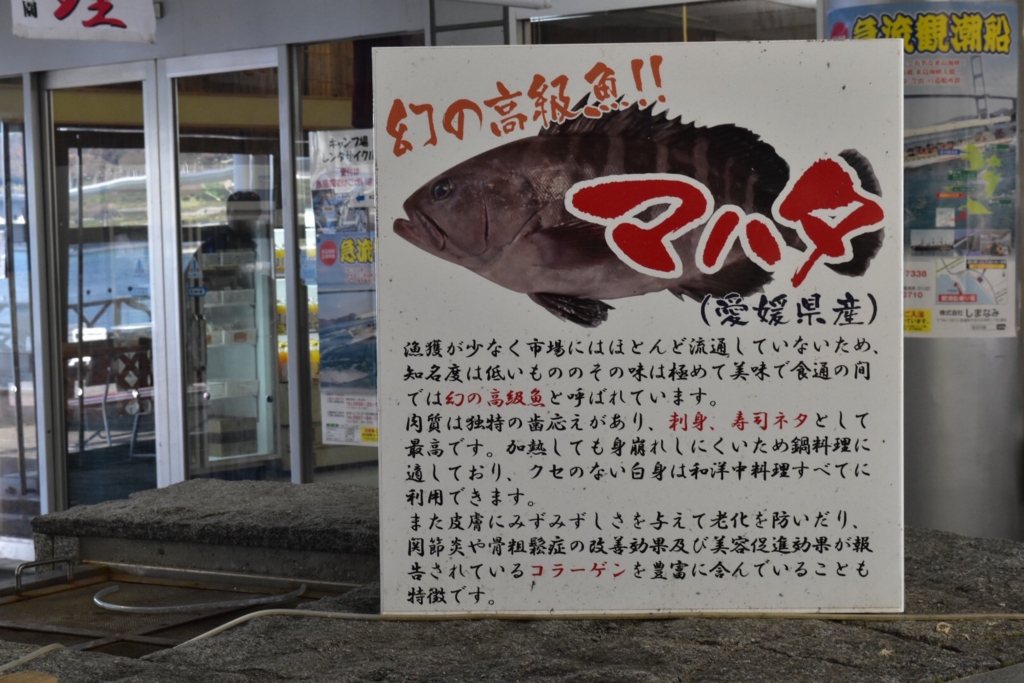 園
幻の高級魚!!
マハタ
(愛媛県産)
漁獲が少なく市場にはほとんど流通していないため、
知名度は低いもののその味は極めて美味で食通の間
では幻の高級魚と呼ばれています。
肉質は独特の歯応えがあり、刺身、寿司ネタとして
最高です。加熱しても身崩れしにくいため鍋料理に
適しており、クセのない白身は和洋中料理すべてに
利用できます。
また皮膚にみずみずしさを与えて老化を防いだり、
関節炎や骨粗鬆症の改善効果及び美容促進効果が報
告されているコラーゲンを豊富に含んでいることも
特徴です。
急流観潮船
7338
0710
株式会社しまなみ
キャンプ場
レンタサイクル
急流